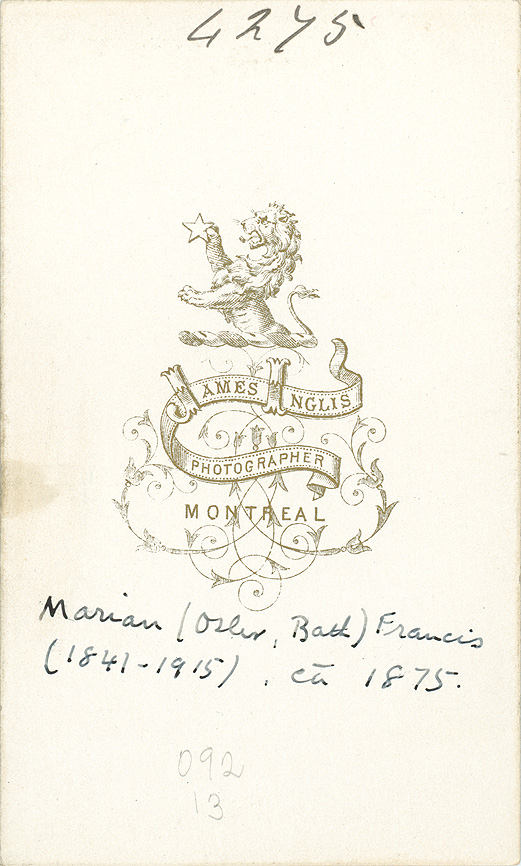 4275
JAMES INGLIS
PHOTOGRAPHER
MONTREAL
Marian (Osler, Batt) Francis
(1841-1915), ca 1875.
092
13